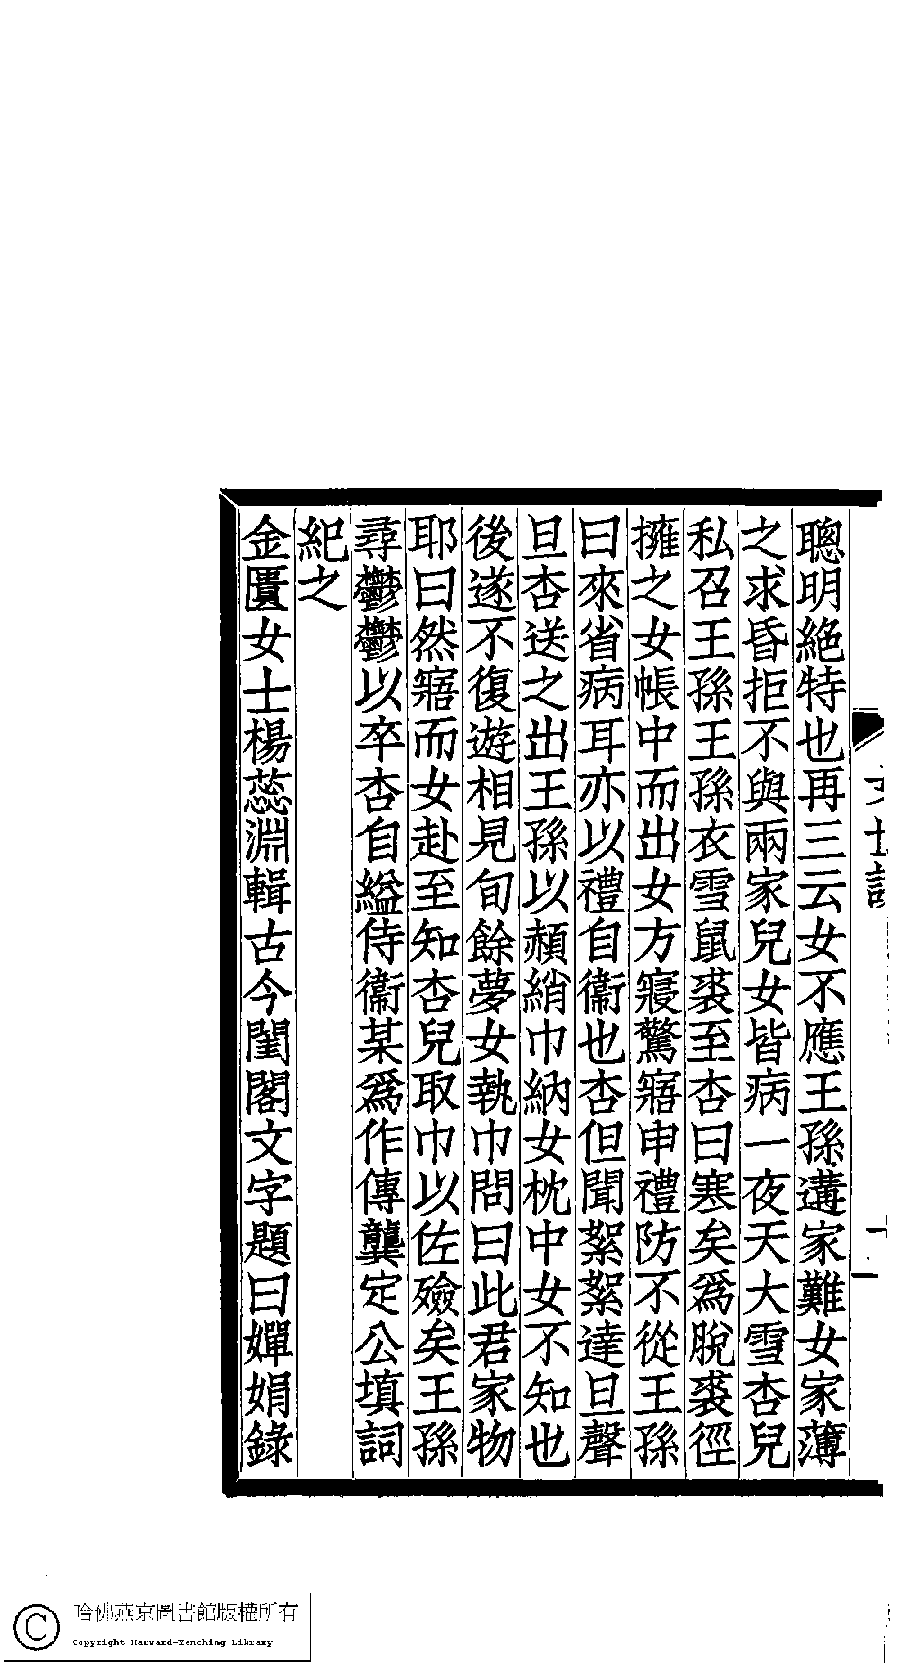 聰明絶特也再三云女不應王孫遘家難女家薄
之求昏拒不與兩家兒女皆病一夜天大雪杏兒
私召王孫王孫衣雪鼠裘至杏曰寒矣爲脫裘徑
擁之女帳中而出女方寢驚寤申禮防不從王孫
曰來省病耳亦以禮自衞也杏但聞絮絮達旦聲
旦杏送之出王孫以赬綃巾納女枕中女不知也
後遂不復遊相見旬餘夢女執巾問曰此君家物
耶曰然寤而女赴至知杏兒取巾以佐殮矣王孫
尋鬱鬱以卒杏自縊侍衞某爲作傳龔定公填詞
紀之
金匱女士楊蕊淵輯古今閨閣文字題曰嬋娟錄
哈佛燕京圖書館版權所有
Copyright Harvard-Yenching Library